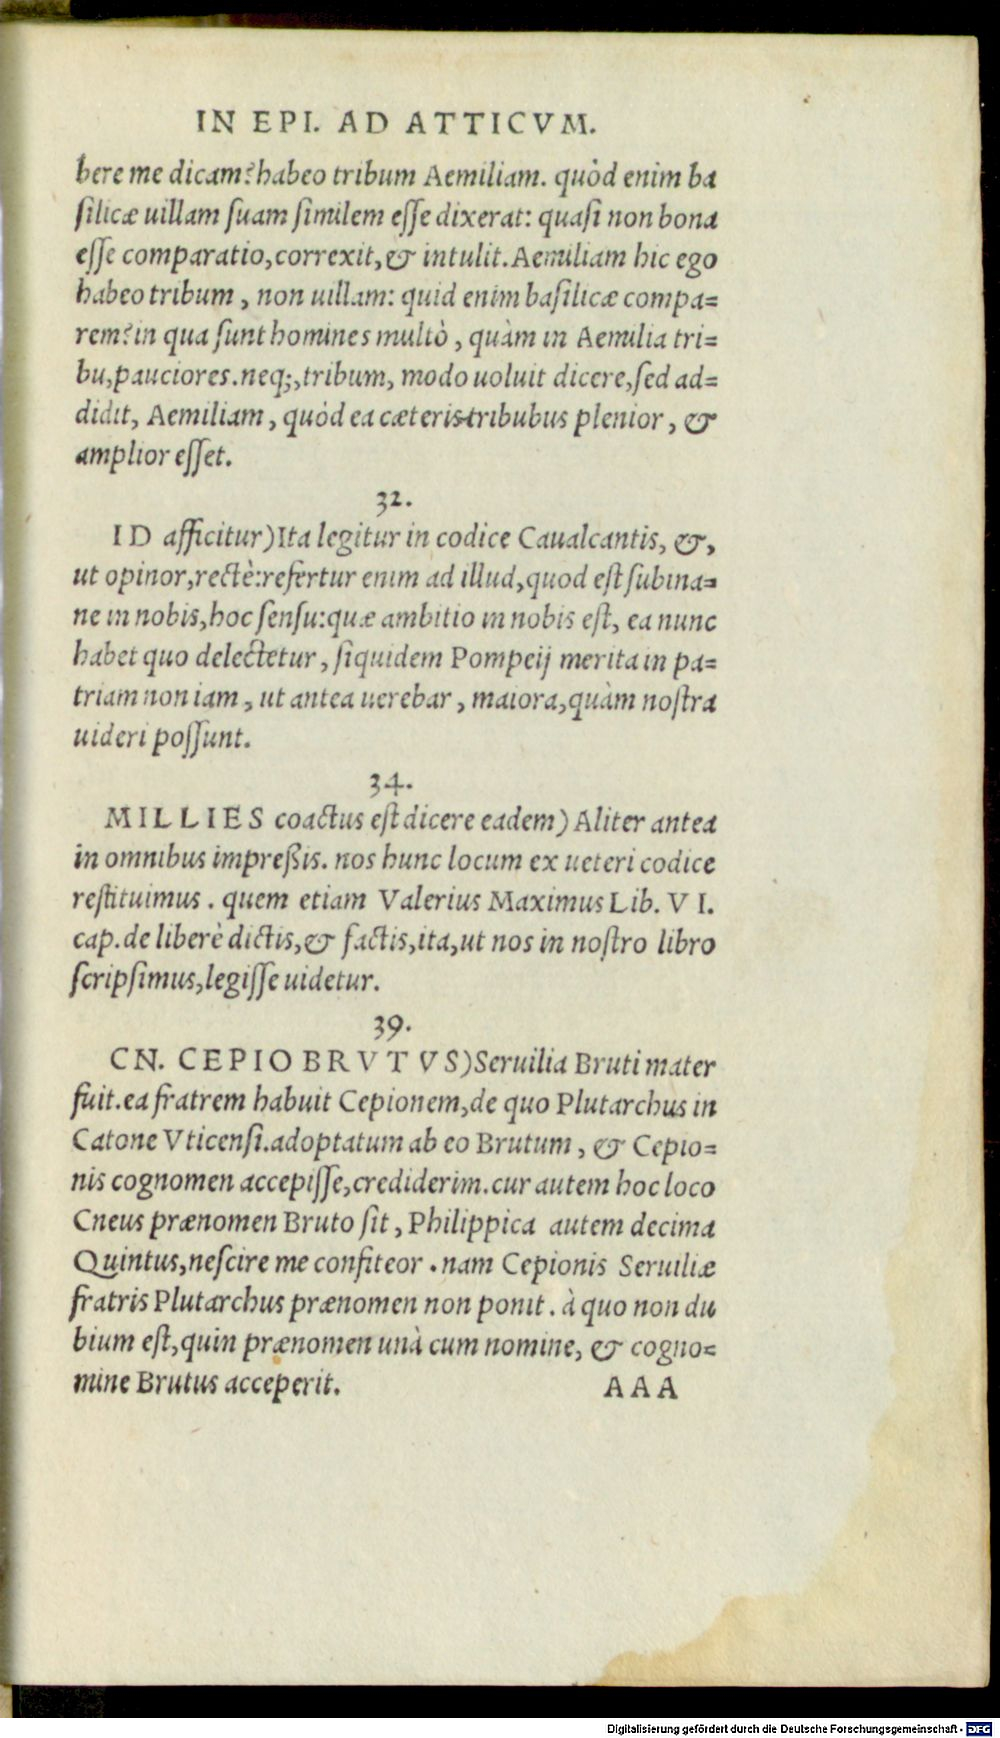 IN EPI. AD ATTICVM.
bere me dicam? habeo tribum Aemiliam. quòd enim ba
ſilicæ uillam ſuam ſimilem eſſe dixerat: quaſi non bona
eſſe comparatio, correxit, & intulit. Aemiliam hic ego
habeo tribum, non uillam: quid enim baſilicæ compa=
rem? in qua ſunt homines multò, quàm in Aemilia tri=
bu, pauciores. neq;, tribum, modo uoluit dicere, ſed ad=
didit, Aemiliam, quòd ea cæteris tribubus plenior, &
amplior eſſet.
32.
ID afficitur) Ita legitur in codice Caualcantis, &,
ut opinor, rectè: refertur enim ad illud, quod eſt ſubina=
ne in nobis, hoc ſenſu: quæ ambitio in nobis eſt, ea nunc
habet quo delectetur, ſiquidem Pompeij merita in pa=
triam non iam, ut antea uerebar, maiora, quàm noſtra
uideri poſſunt.
34.
MILLIES coactus eſt dicere eadem) Aliter antea
in omnibus impreßis. nos hunc locum ex ueteri codice
reſtituimus. quem etiam Valerius Maximus Lib. VI.
cap. de liberè dictis, & factis, ita, ut nos in noſtro libro
ſcripſimus, legiſſe uidetur.
39.
CN. CEPIO BRVTVS) Seruilia Bruti mater
fuit. ea fratrem habuit Cepionem, de quo Plutarchus in
Catone Vticenſi. adoptatum ab eo Brutum, & Cepio=
nis cognomen accepiſſe, crediderim. cur autem hoc loco
Cneus prænomen Bruto ſit, Philippica autem decima
Quintus, neſcire me confiteor. nam Cepionis Seruiliæ
fratris Plutarchus prænomen non ponit. à quo non du
bium eſt, quin prænomen unà cum nomine, & cogno=
mine Brutus acceperit.
AAA
Digitalisierung gefördert durch die Deutsche Forschungsgemeinschaft - DFG